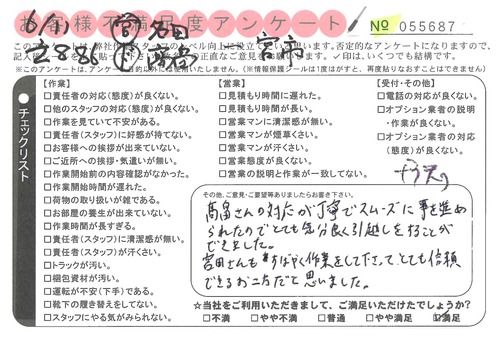 お客様不満足度アンケート
№ 055687
6/1 ㊂ 宮田
2886
このアンケートは、弊社
✓印は、いくつでも結構です。
※このアンケートは、
(※情報保護シールは1度はがすと、再度貼りなおすことはできません)
チェックリスト
【作業】
□責任者の対応(態度)が良くない。
□他のスタッフの対応(態度)が良くない。
□作業を見ていて不安がある。
□責任者(スタッフ)に好感が持てない。
□お客様への挨拶が出来ていない。
□ご近所への挨拶・気遣いが無い。
□作業開始前の内容確認がなかった。
□作業開始時間が遅れた。
□荷物の取り扱いが雑である。
□お部屋の養生が出来ていない。
□作業時間が長すぎる。
□責任者(スタッフ)に清潔感が無い。
□責任者(スタッフ)が汗くさい。
□トラックが汚い。
□梱包資材が汚い。
□運転が不安(下手)である。
□靴下の履き替えをしてない。
□スタッフにやる気がみられない。
【営業】
□見積もり時間に遅れた。
□見積もり時間が長い。
□営業マンに清潔感が無い。
□営業マンが煙草くさい。
□営業マンが汗くさい。
□営業態度が良くない。
□営業の説明と作業が一致してない。
【受付・その他】
□電話の対応が良くない。
□オプション業者の説明・作業が良くない。
□オプション業者の対応(態度)が良くない。
その他、ご意見・ご要望等ありましたらお書き下さい。
高畠さんの対応が丁寧でスムーズに事を進め
られたのでとても気分良く引越しをすることが
できました。
宮田さんもすばやく作業をして下さってとても信頼
できるお二方だと思いました。
☆当社をご利用いただきまして、ご満足いただけたでしょうか?
□不満 □やや不満 □普通 □やや満足 ☑満足